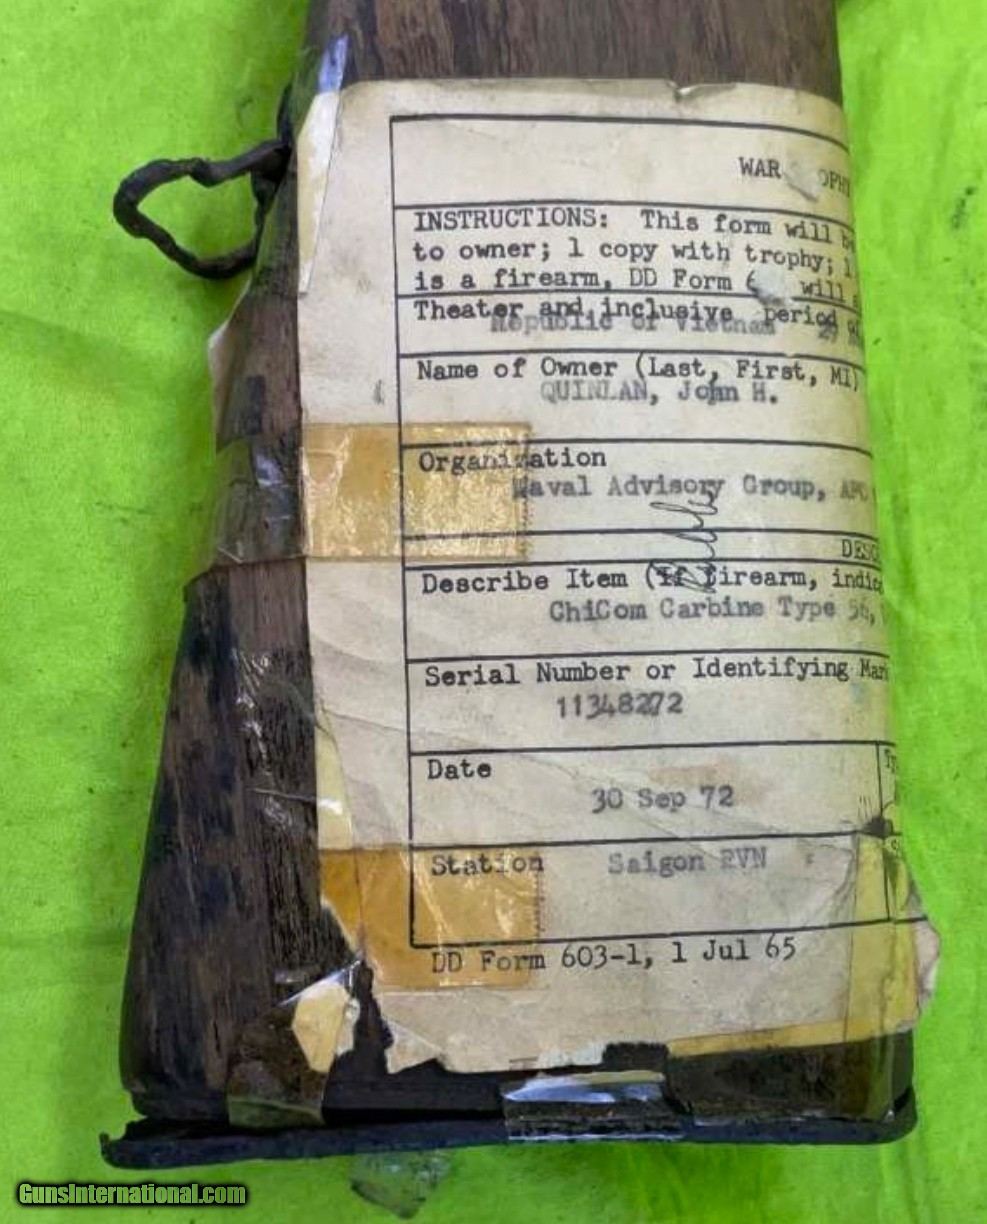 WAR
INSTRUCTIONS: This form will be
to owner; 1 copy with trophy; 1
is a firearm, DD Form will
Theater and inclusive period
Republic of Vietnam 29
Name of Owner (Last, First, MI)
QUINLAN, John H.
Organization
Naval Advisory Group,
Describe Item (If firearm,
ChiCom Carbine Type 56,
Serial Number or Identifying
11348272
Date
30 Sep 72
Station Saigon RVN
DD Form 603-1, 1 Jul 65
GunsInternational.com